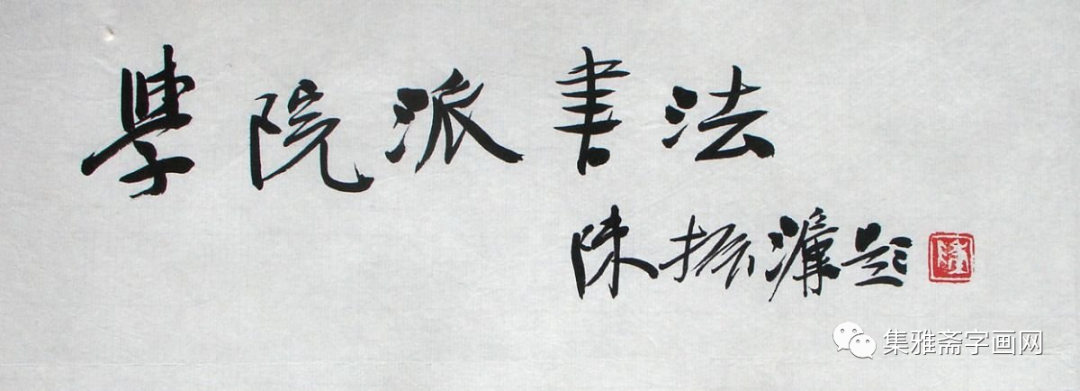 學院派書法
陳振濂題
集雅斋字画网